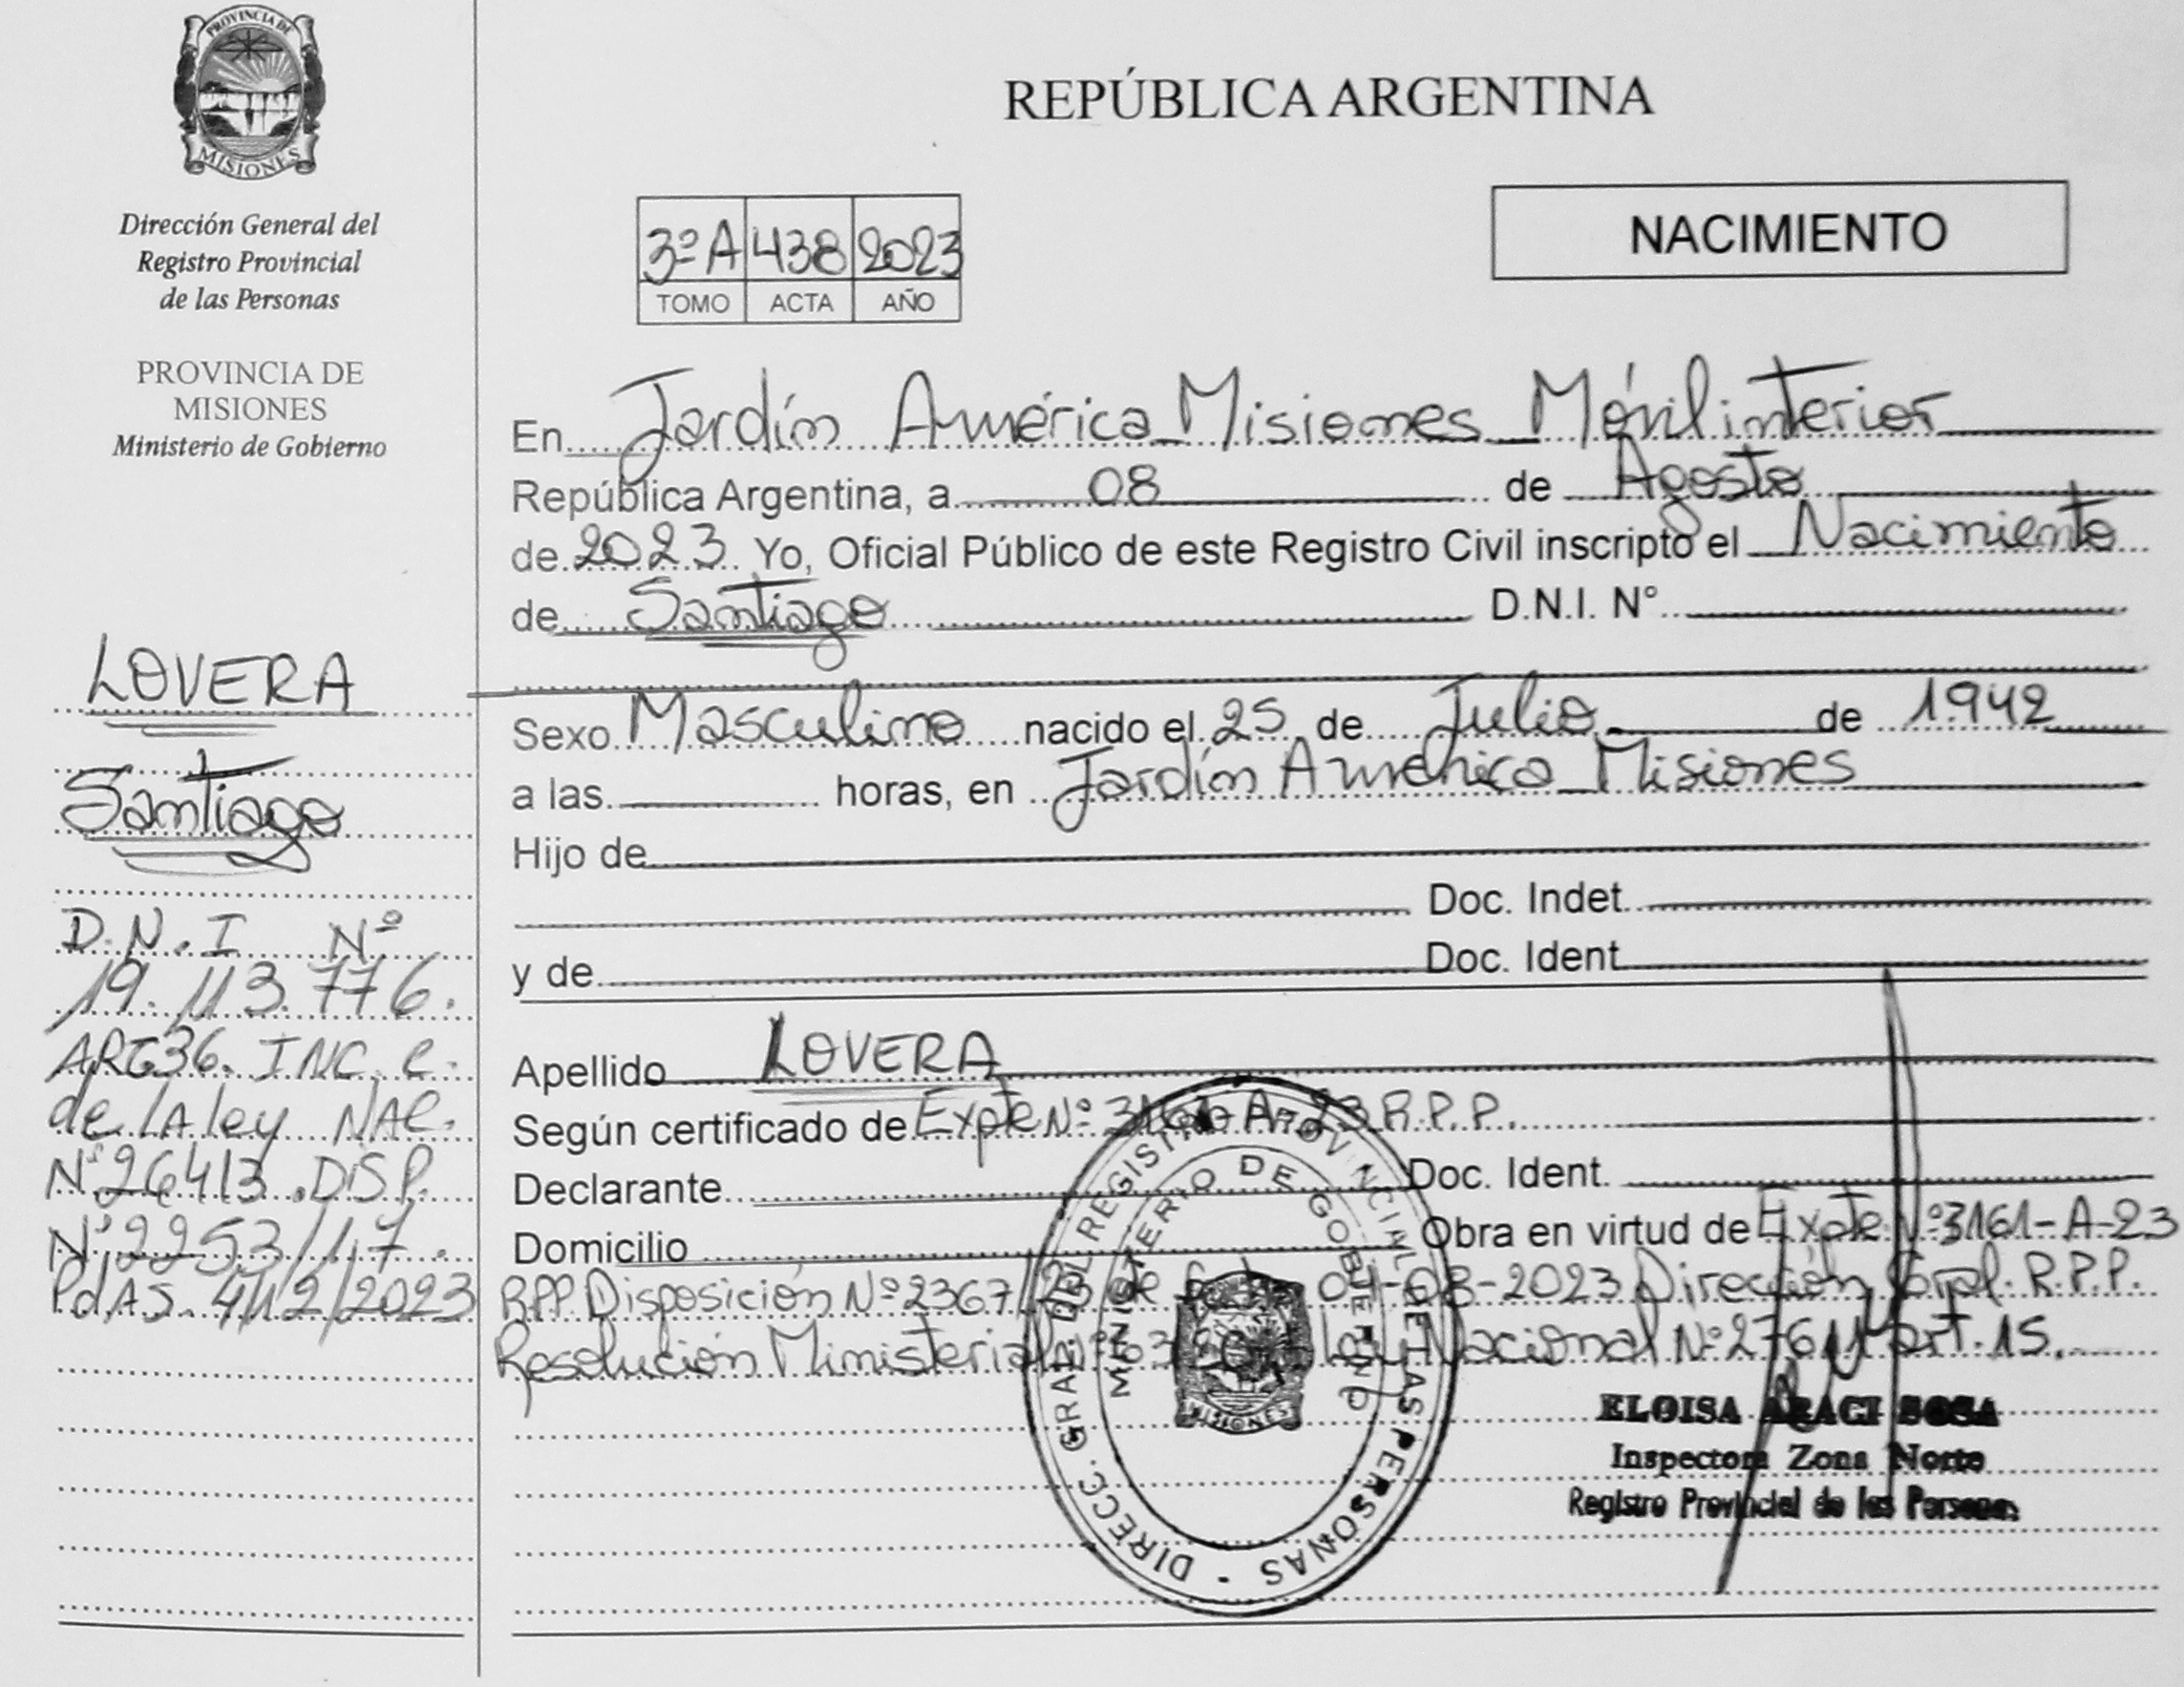 PROVINCIA DE
MISIONES
Dirección General del
Registro Provincial
de las Personas
PROVINCIA DE
MISIONES
Ministerio de Gobierno
LOVERA
Santiago
D.N.I Nº
19.113.776.
ART36. INC. C.
de lA ley NAC.
Nº26413.DISP.
Nº2253/17.
PdAS. 4/12/2023
REPÚBLICA ARGENTINA
3º A 438 2023
TOMO ACTA AÑO
NACIMIENTO
En Jardín América Misiones Móvil interior
República Argentina, a 08 de Agosto
de 2023 Yo, Oficial Público de este Registro Civil inscripto el Nacimiento
de Santiago D.N.I. N°
Sexo Masculino nacido el 25 de Julio de 1942
a las horas, en Jardín América Misiones
Hijo de
Doc. Indet.
y de Doc. Ident
Apellido LOVERA
Según certificado de Expte Nº 3161-A-23 R.P.P.
Declarante Doc. Ident.
Domicilio Obra en virtud de Expte Nº3161-A-23
RPP. Disposición Nº2367/23 de 04-08-2023 Dirección Gral. R.P.P.
Resolución Ministerial Ley Nacional Nº27611 art. 15.
DIRECC. GRAL. DEL REGISTRO PROVINCIAL DE LAS PERSONAS -
MINISTERIO DE GOBIERNO
MISIONES
ELOISA ARACI SOSA
Inspectora Zona Norte
Registro Provincial de las Personas